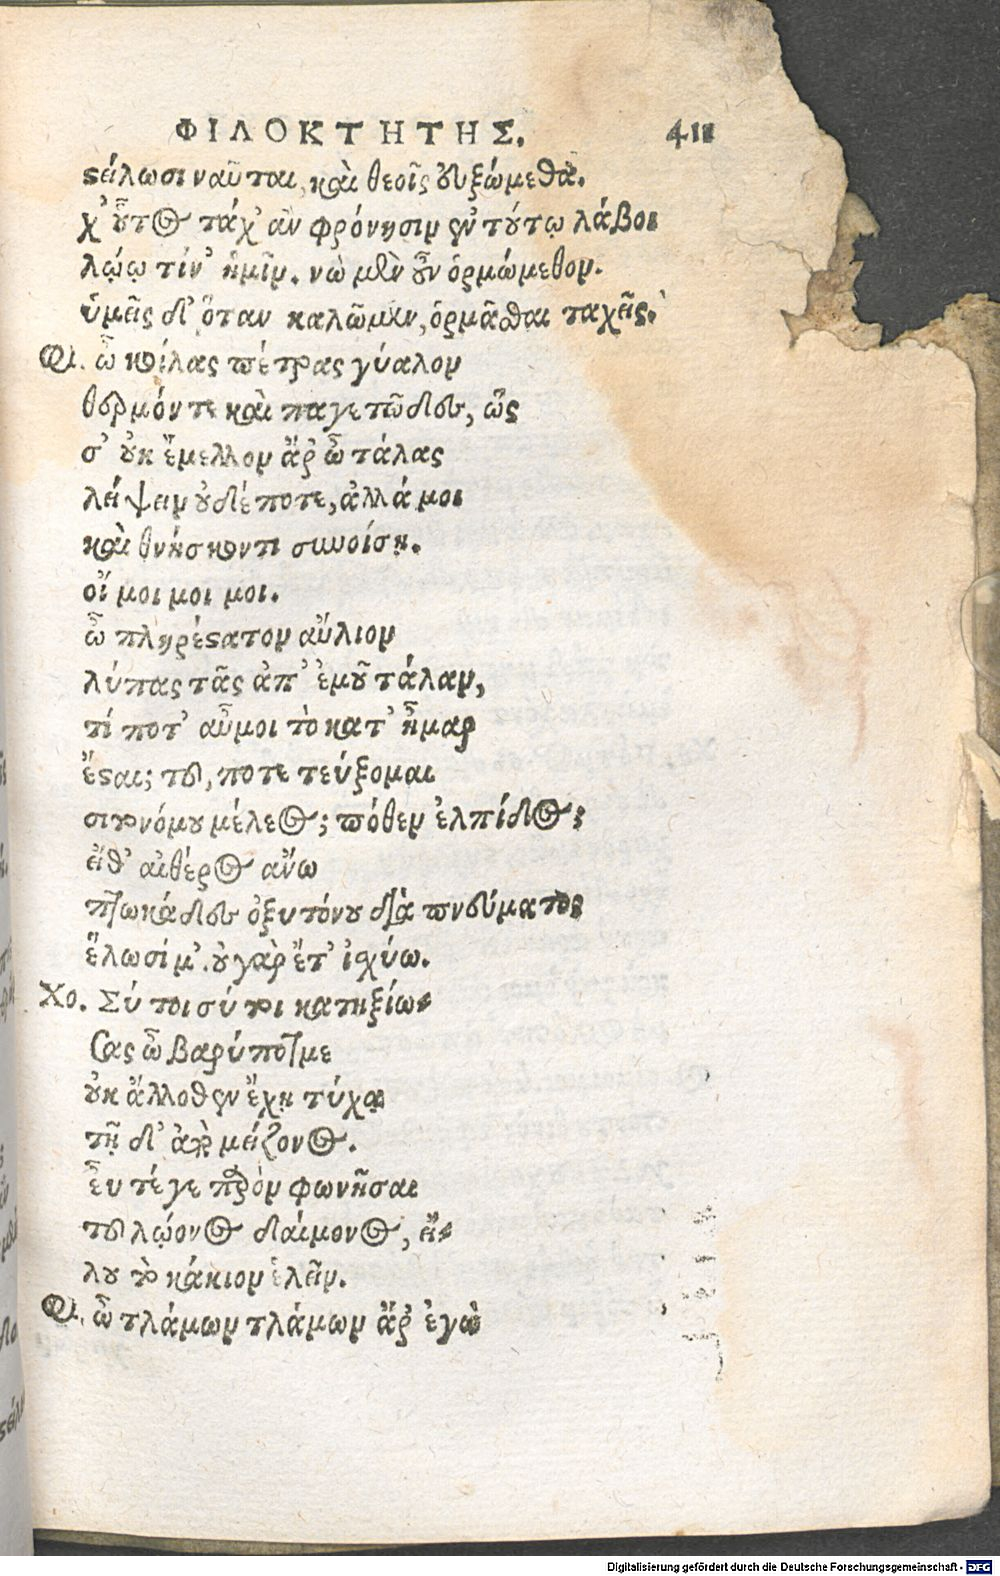 ΦΙΛΟΚΤΗΤΗΣ. 411
ϛείλωσι ναῦται, καὶ θεοῖς ὀυξώμεθα.
χ' ὗτος τάχ' ἀν φρόνησιν ἐν τύτῳ λάβοι
λῴω τίν' ἡμῖν. νὼ μὲν ὖν ὁρμώμεθον.
ὑμεῖς δ' ὅταν καλῶμεν, ὁρμᾶσθαι ταχεῖς.
Φι. ὦ κοίλας πέτρας γύαλον
θερμόν τε καὶ παγετῶδες, ὥς
σ' ὐκ ἔμελλον ἄρ ὦ τάλας
λείψειν ὐδέποτε, ἀλλά μοι
καὶ θνήσκοντι συνοίσῃ.
οἴ μοι μοι μοι.
ὦ πληρέϛατον αὔλιον
λύπας τᾶς ἀπ' ἐμοῦ τάλαν,
τί ποτ' αὖ μοι τὸ κατ' ἦμαρ
ἔϛαι; του, ποτε τεύξομαι
σιτονόμου μέλεος; πόθεν ἐλπίδος;
εἴθ' αἰθέρος ἄνω
πτωκάδες ὀξυτόνου διὰ πνεύματος
ἕλωσί μ'. οὐ γὰρ ἔτ' ἰσχύω.
Χο. Σύ τοι σύ τοι κατηξίω-
σας ὦ βαρύποτμε
οὐκ ἄλλοθεν ἔχῃ τύχᾳ
τῇ δ' ἀπὸ μείζονος.
εὖ τέ γε παρὸν φωνῆσαι
του λῴονος δαίμονος, εἵ-
λου τὸ κάκιον ἑλεῖν.
Φι. ὦ τλάμων τλάμων ἄρ ἐγὼ
Digitalisierung gefördert durch die Deutsche Forschungsgemeinschaft - DFG